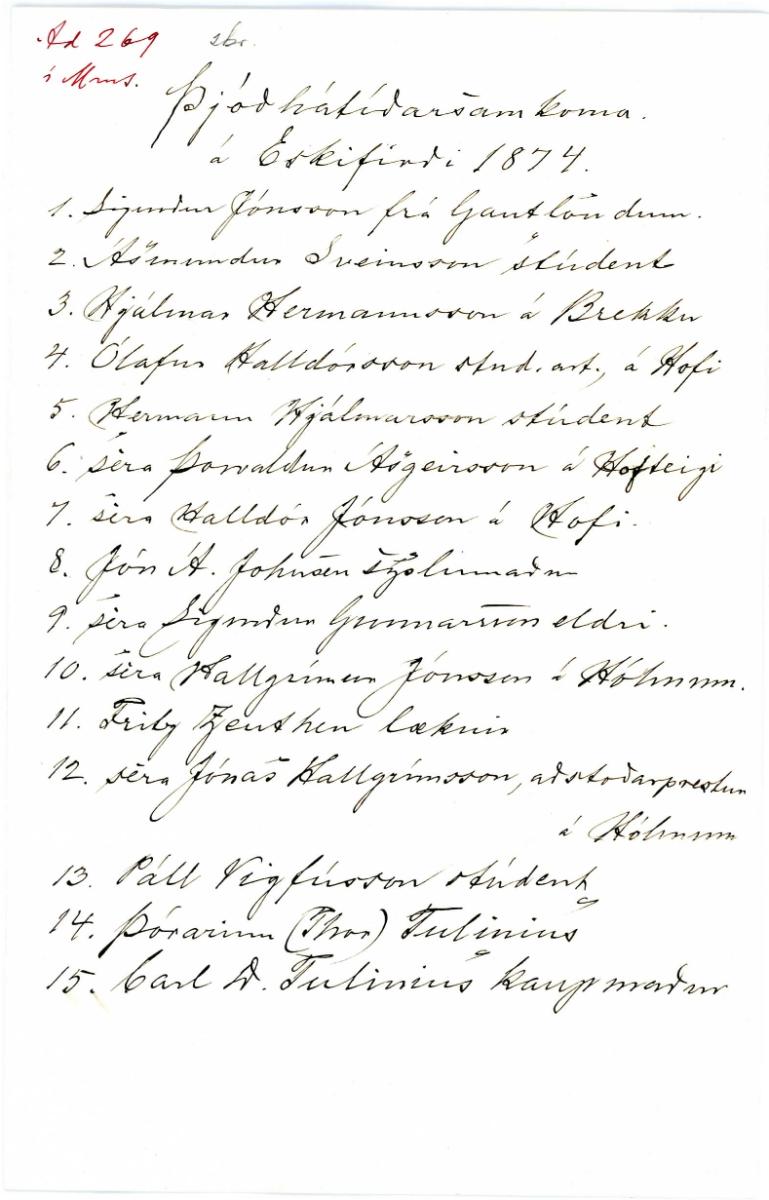 Ad 269 sbr.
í Mms.
Þjóðhátíðarsamkoma.
á Eskifirði 1874.
1. Sigurður Jónsson frá Gautlöndum.
2. Ásmundur Sveinsson stúdent
3. Hjálmar Hermannsson á Brekku
4. Ólafur Halldórsson stud. art., á Hofi
5. Hermann Hjálmarsson stúdent
6. séra Þorvaldur Ásgeirsson á Hofteigi
7. séra Halldór Jónsson á Hofi.
8. Jón Á. Johnsen sýslumaður
9. séra Sigurður Gunnarsson eldri.
10. séra Hallgrímur Jónsson á Hólmum.
11. Fritz Zeuthen læknir
12. séra Jónas Hallgrímsson, aðstoðarprestur
á Hólmum
13. Páll Vigfússon stúdent
14. Þórarinn (Thor) Tulinius
15. Carl D. Tulinius kaupmaður